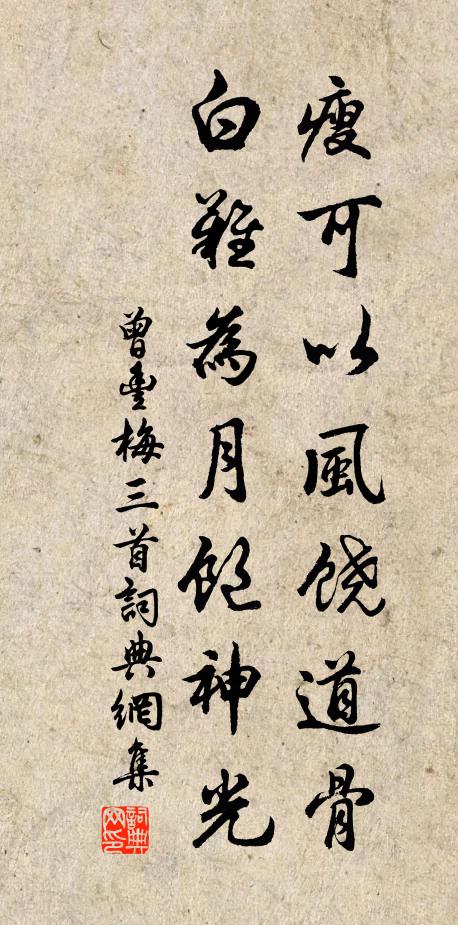 瘦可以風饒道骨
白難為月飽神光
曾豊梅三首詞典網集
詞典網印